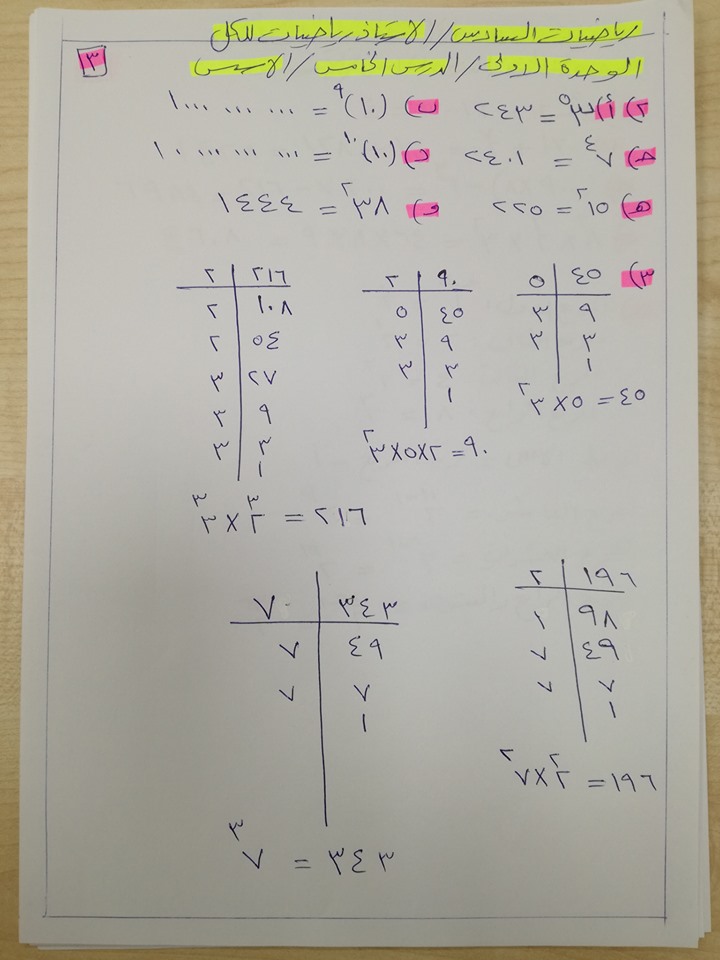 رياضيات السادس/الاستاذ رياضيات للكل
الوحدة الاولى/الدرس الخامس/الاسس
٣
٢) أ) ٣^٥ = ٢٤٣ ب) (١٠)^٩ = ١٠٠٠ ٠٠٠ ٠٠٠
ج) ٧^٤ = ٢٤٠١ د) (١٠)^١٠ = ١٠ ٠٠٠ ٠٠٠ ٠٠٠
هـ) ١٥^٢ = ٢٢٥ و) ٣٨^٢ = ١٤٤٤
٣)
٤٥ | ٥
٩ | ٣
٣ | ٣
١
٤٥ = ٥ × ٣^٢
٩٠ | ٢
٤٥ | ٥
٩ | ٣
٣ | ٣
١
٩٠ = ٢ × ٥ × ٣^٢
٢١٦ | ٢
١٠٨ | ٢
٥٤ | ٢
٢٧ | ٣
٩ | ٣
٣ | ٣
١
٢١٦ = ٢^٣ × ٣^٣
١٩٦ | ٢
٩٨ | ٢
٤٩ | ٧
٧ | ٧
١
١٩٦ = ٢^٢ × ٧^٢
٣٤٣ | ٧
٤٩ | ٧
٧ | ٧
١
٣٤٣ = ٧^٣